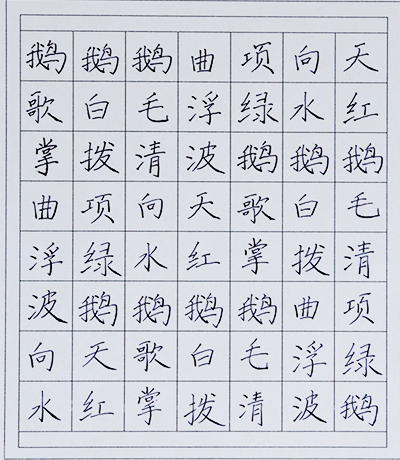 鹅鹅鹅曲项向天
歌白毛浮绿水红
掌拨清波鹅鹅鹅
曲项向天歌白毛
浮绿水红掌拨清
波鹅鹅鹅鹅曲项
向天歌白毛浮绿
水红掌拨清波鹅